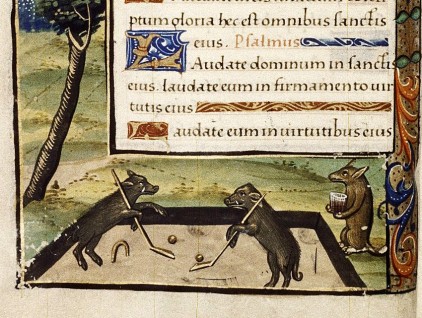 ptum gloria hec est omnibus sanctis
eius. Psalmus
Laudate dominum in sanct
eius. laudate eum in firmamento vir
tutis eius
Laudate eum in virtutibus eius